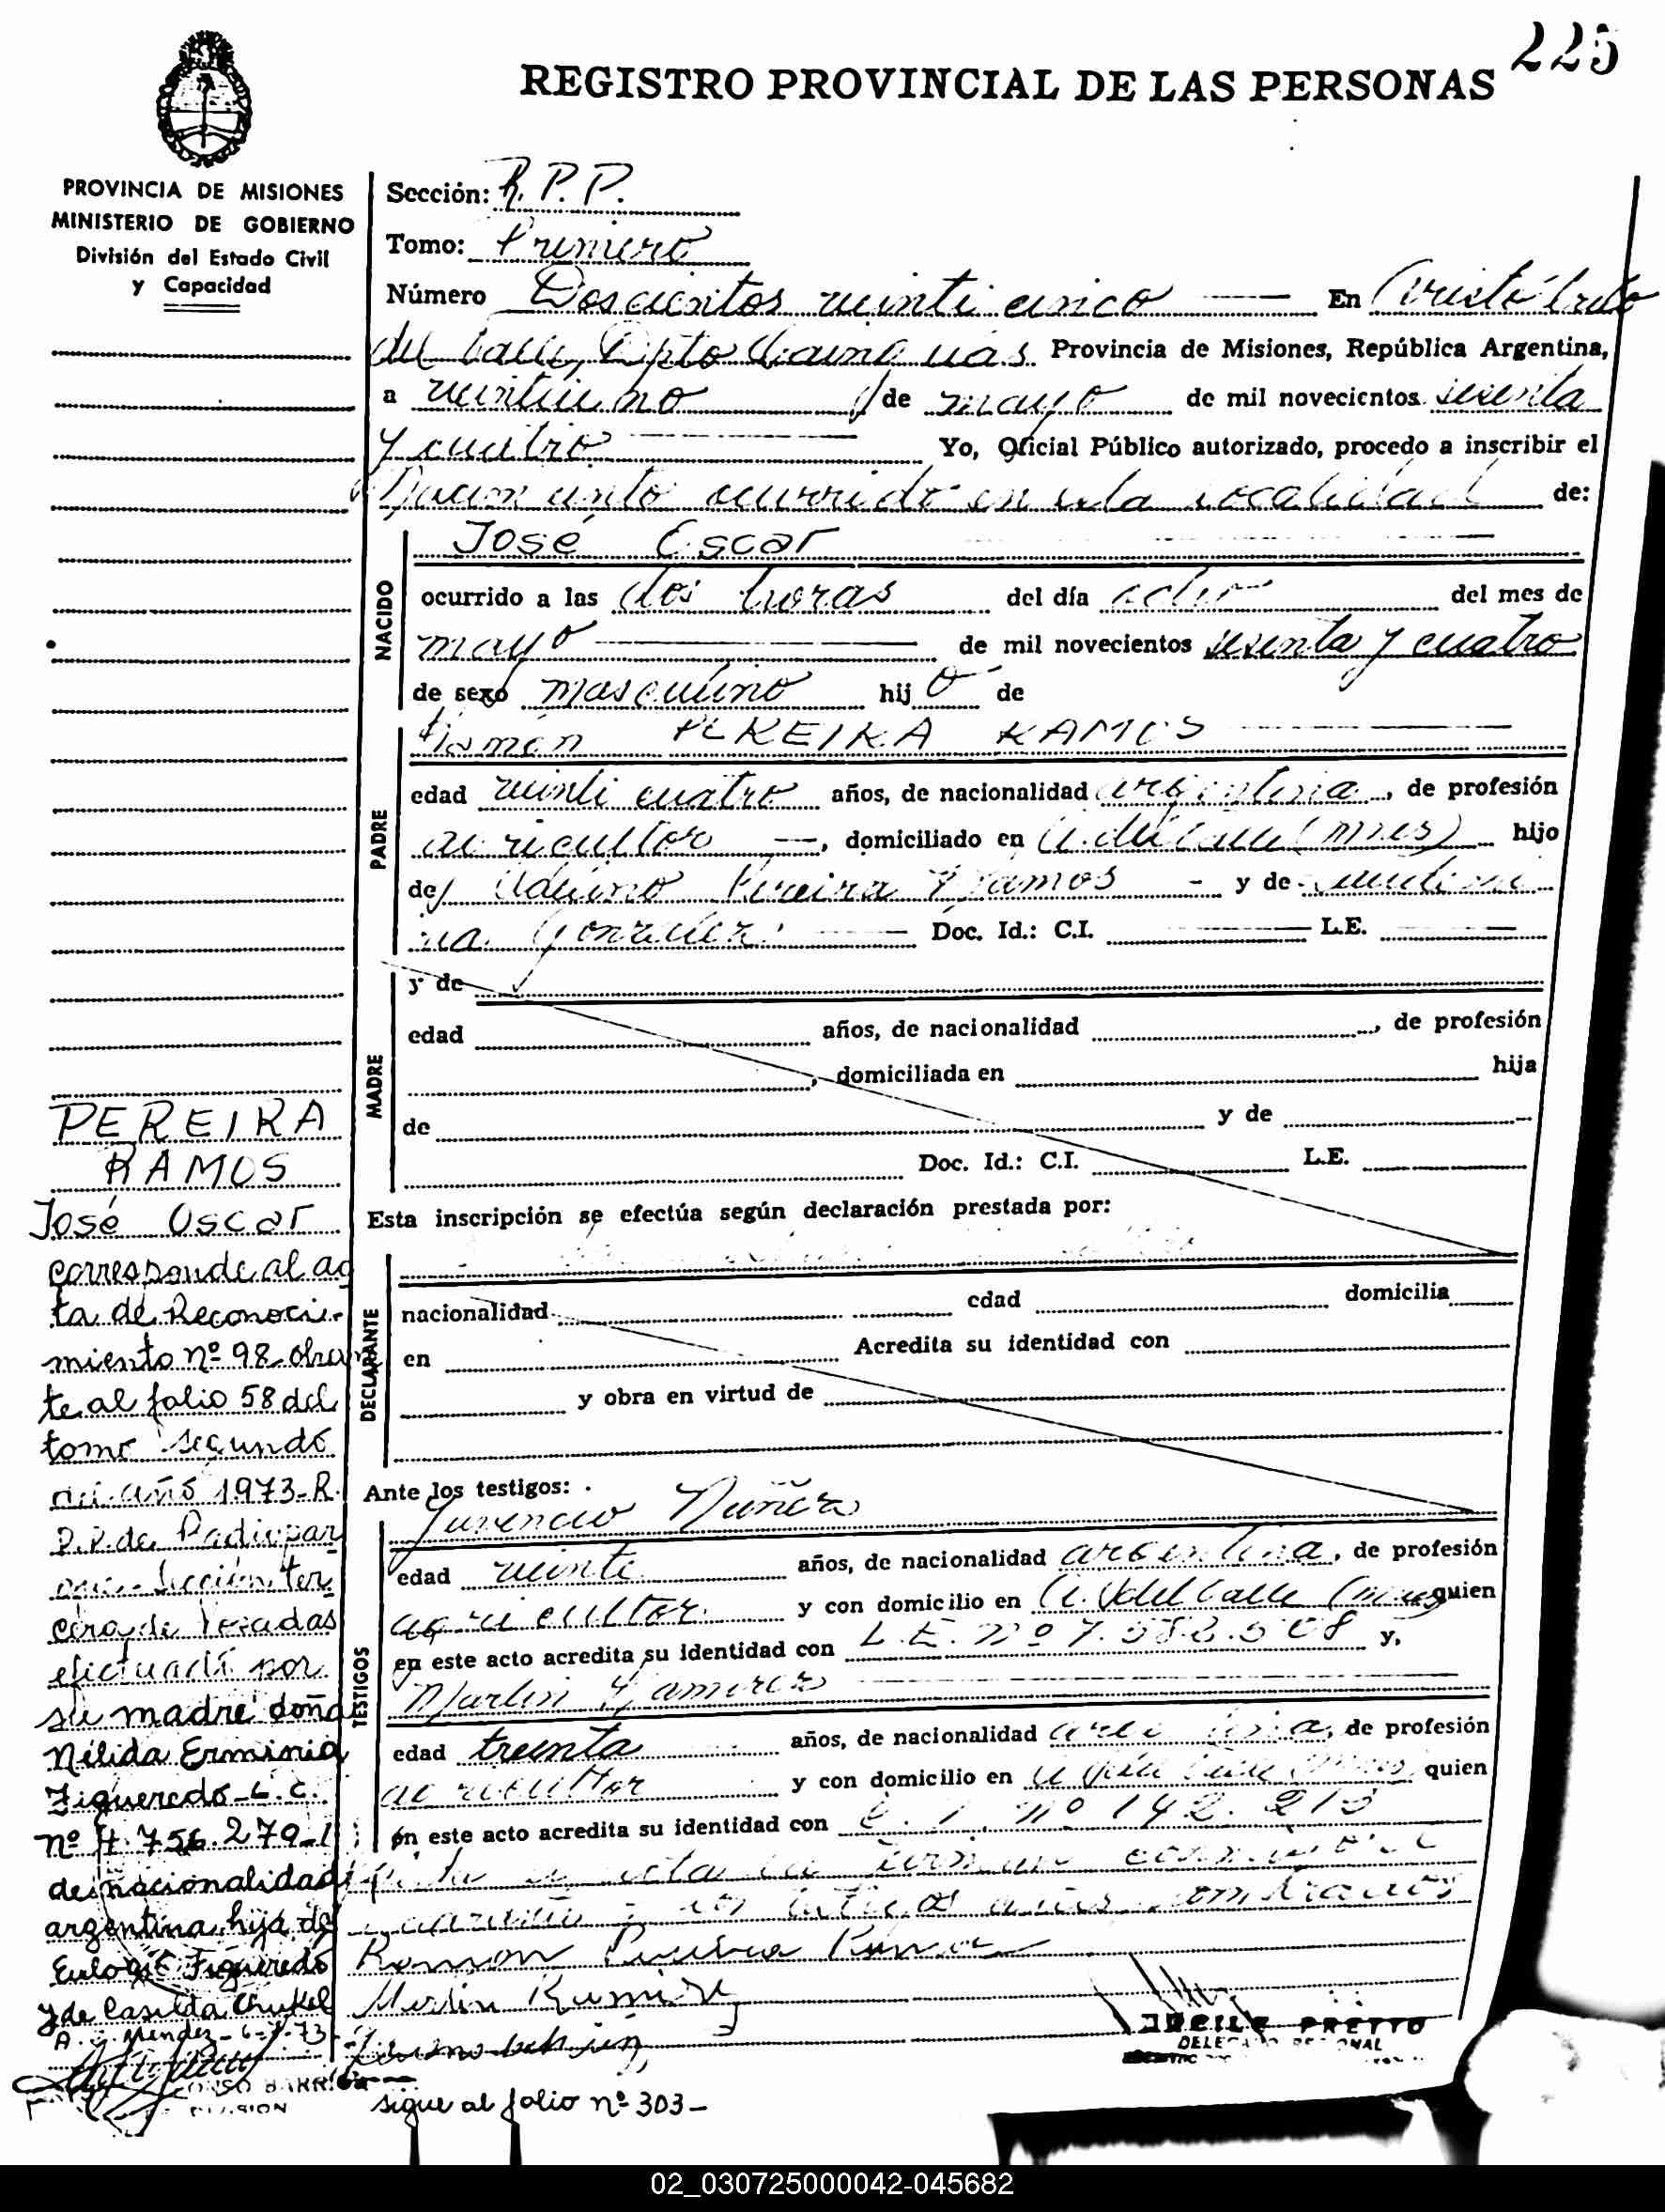 225
REGISTRO PROVINCIAL DE LAS PERSONAS
PROVINCIA DE MISIONES
MINISTERIO DE GOBIERNO
División del Estado Civil
y Capacidad
Sección: R.P.P.
Tomo: Primero
Número Doscientos veinti cinco En Aristóbulo
del Valle, Dpto Cainguás Provincia de Misiones, República Argentina,
a veintiuno de mayo de mil novecientos sesenta
y cuatro Yo, Oficial Público autorizado, procedo a inscribir el
Nacimiento ocurrido en esta localidad de:
NACIDO
José Oscar
ocurrido a las dos horas del día ocho del mes de
mayo de mil novecientos sesenta y cuatro
de sexo masculino hijo de
PADRE
Ramón PEREIRA RAMOS
edad veinti cuatro años, de nacionalidad argentina, de profesión
agricultor, domiciliado en A. del Valle (Mnes) hijo
de Pereira Ramos y de
González Doc. Id.: C.I. L.E.
MADRE
y de
edad años, de nacionalidad , de profesión
, domiciliada en hija
de y de
Doc. Id.: C.I. L.E.
Esta inscripción se efectúa según declaración prestada por:
DECLARANTE
nacionalidad edad domicilia
en Acredita su identidad con
y obra en virtud de
Ante los testigos:
TESTIGOS
Juvencio Nuñez
edad veinte años, de nacionalidad argentina, de profesión
agricultor y con domicilio en A. del Valle (Mnes) quien
en este acto acredita su identidad con L.E. Nº 7.582.508 y,
Martin Ramirez
edad treinta años, de nacionalidad argentina, de profesión
agricultor y con domicilio en A. del Valle quien
en este acto acredita su identidad con C.I. nº 142.213
acta la firman conmigo el
testigos nombrados
Ramon Pereira Ramos
Martin Ramirez
sigue al folio nº 303-
PRETTO
DELEGADO REGIONAL
PEREIRA
RAMOS
José Oscar
corresponde al ac
ta de Reconoci-
miento nº 98 obran
te al folio 58 del
tomo segundo
del año 1973-R.
P.P. de
sección ter
cera de Posadas
efectuada por
su madre doña
Nélida Erminia
Figueredo-L.C.
nº 4.756.279-
de nacionalidad
argentina hija de
Eulogio Figueredo
y de Casilda Chukel
A. G. Mendez-6-9-73
02_030725000042-045682